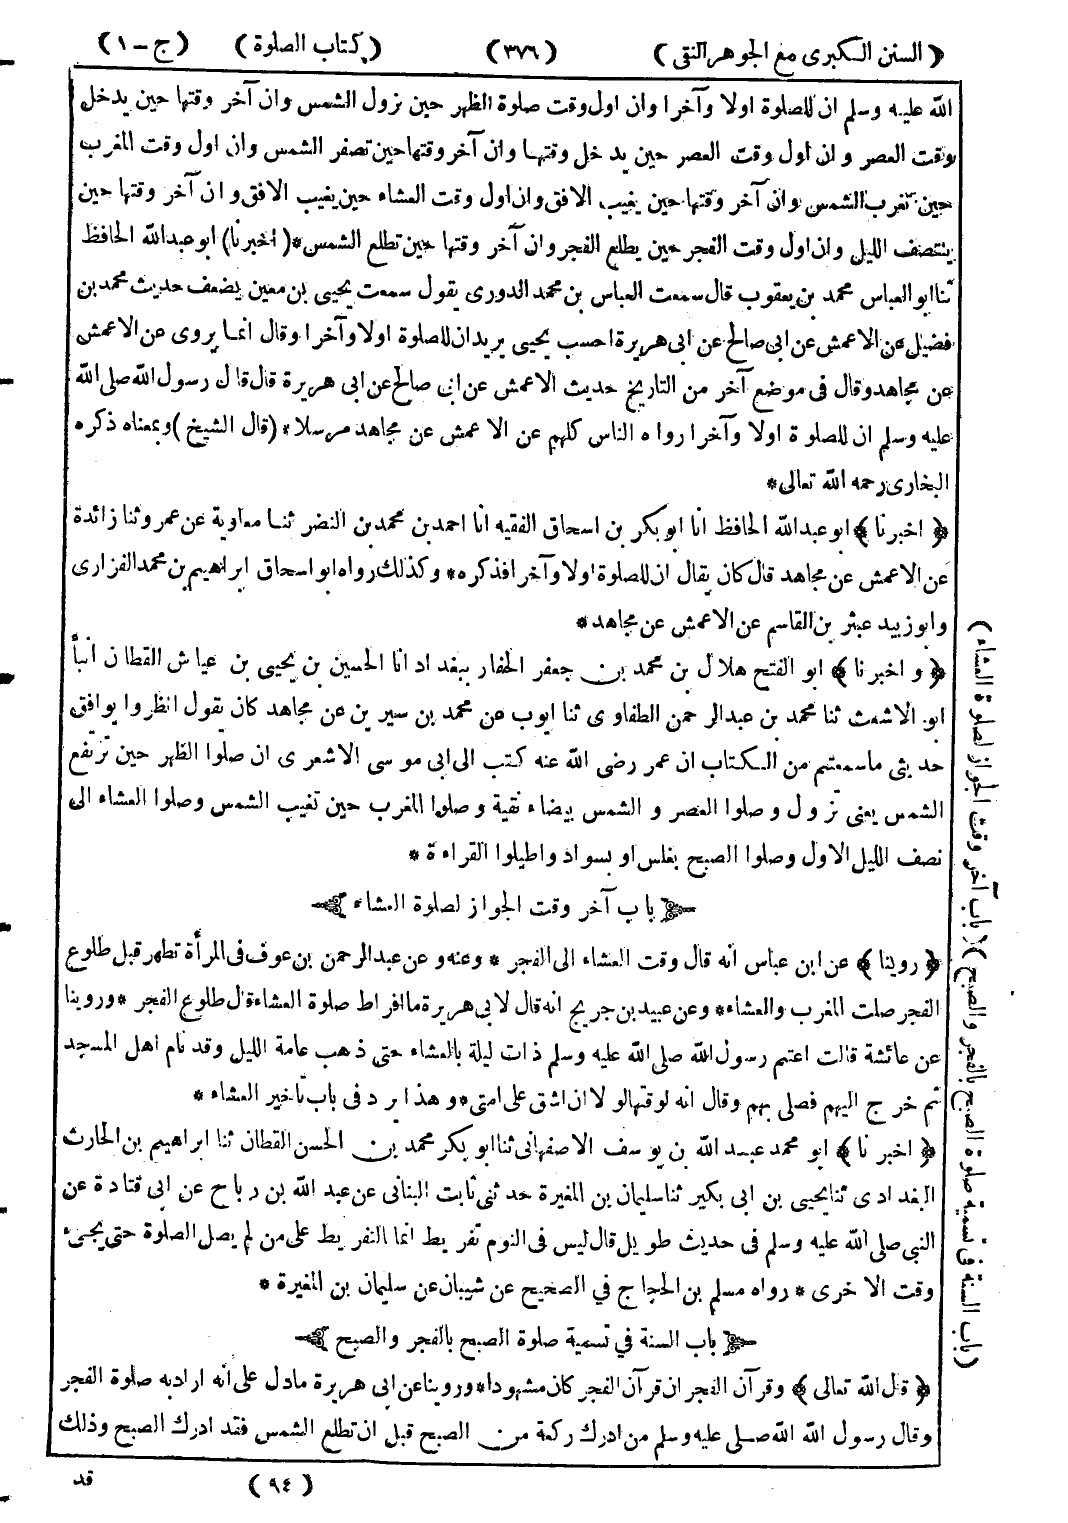 (السنن الكبرى مع الجوهر النقى) (٣٧٦) (كتاب الصلوة) (ج-١)
الله عليه وسلم ان للصلوة اولا وآخرا وان اول وقت صلوة الظهر حين تزول الشمس وان آخر وقتها حين يدخل
وقت العصر وان أول وقت العصر حين يدخل وقتها وان آخر وقتها حين تصفر الشمس وان اول وقت المغرب
حين تغرب الشمس وان آخر وقتها حين يغيب الافق وان اول وقت العشاء حين يغيب الافق وان آخر وقتها حين
ينتصف الليل وان اول وقت الفجر حين يطلع الفجر وان آخر وقتها حين تطلع الشمس * (اخبرنا) ابو عبدالله الحافظ
ثنا ابو العباس محمد بن يعقوب قال سمعت العباس بن محمد الدورى يقول سمعت يحيى بن معين يضعف حديث محمد بن
فضيل عن الاعمش عن ابى صالح عن ابى هريرة احسب يحيى يريد ان للصلوة اولا وآخرا وقال انما يروى عن الاعمش
عن مجاهد وقال فى موضع آخر من التاريخ حديث الاعمش عن ابى صالح عن ابى هريرة قال قال رسول الله صلى الله
عليه وسلم ان للصلوة اولا وآخرا رواه الناس كلهم عن الاعمش عن مجاهد مرسلا * (قال الشيخ) وبمعناه ذكره
البخارى رحمه الله تعالى *
﴿ اخبرنا ﴾ ابو عبدالله الحافظ انا ابو بكر بن اسحاق الفقيه انا احمد بن محمد بن النضر ثنا معاوية عن عمرو ثنا زائدة
عن الاعمش عن مجاهد قال كان يقال ان للصلوة اولا وآخرا فذكره * وكذلك رواه ابو اسحاق ابراهيم بن محمد الفزارى
وابو زبيد عبثر بن القاسم عن الاعمش عن مجاهد *
﴿ واخبرنا ﴾ ابو الفتح هلال بن محمد بن جعفر الحفار ببغداد انا الحسين بن يحيى بن عياش القطان أنبأ
ابو الاشعث ثنا محمد بن عبدالرحمن الطفاوى ثنا ايوب عن محمد بن سيرين عن مجاهد كان يقول انظروا يوافق
حديثى ما سمعتم من الكتاب ان عمر رضى الله عنه كتب الى ابى موسى الاشعرى ان صلوا الظهر حين ترتفع
الشمس يعنى تزول وصلوا العصر والشمس بيضاء نقية وصلوا المغرب حين تغيب الشمس وصلوا العشاء الى
نصف الليل الاول وصلوا الصبح بغلس او بسواد واطيلوا القراءة *
باب آخر وقت الجواز لصلوة العشاء
﴿ روينا ﴾ عن ابن عباس انه قال وقت العشاء الى الفجر * وعنه وعن عبدالرحمن بن عوف فى المرأة تطهر قبل طلوع
الفجر صلت المغرب والعشاء * وعن عبيد بن جريج انه قال لابى هريرة ما افراط صلوة العشاء قال طلوع الفجر * وروينا
عن عائشة قالت اعتم رسول الله صلى الله عليه وسلم ذات ليلة بالعشاء حتى ذهب عامة الليل وقد نام اهل المسجد
ثم خرج اليهم فصلى بهم وقال انه لوقتها لولا ان اشق على امتى * وهذا يرد فى باب تأخير العشاء *
﴿ اخبرنا ﴾ ابو محمد عبد الله بن يوسف الاصفهانى ثنا ابو بكر محمد بن الحسن القطان ثنا ابراهيم بن الحارث
البغدادى ثنا يحيى بن ابى بكير ثنا سليمان بن المغيرة حدثنى ثابت البنانى عن عبد الله بن رباح عن ابى قتادة عن
النبى صلى الله عليه وسلم فى حديث طويل قال ليس فى النوم تفريط انما التفريط على من لم يصل الصلوة حتى يجىء
وقت الاخرى * رواه مسلم بن الحجاج في الصحيح عن شيبان عن سليمان بن المغيرة *
باب السنة في تسمية صلوة الصبح بالفجر والصبح
﴿ قال الله تعالى ﴾ وقرآن الفجر ان قرآن الفجر كان مشهودا * وروينا عن ابى هريرة ما دل على أنه اراد به صلوة الفجر
وقال رسول الله الله صلى عليه وسلم من ادرك ركعة من الصبح قبل ان تطلع الشمس فقد ادرك الصبح وذلك
(باب السنة فى تسمية صلوة الصبح بالفجر والصبح) (باب آخر وقت الجواز لصلوة العشاء)
(٩٤) قد